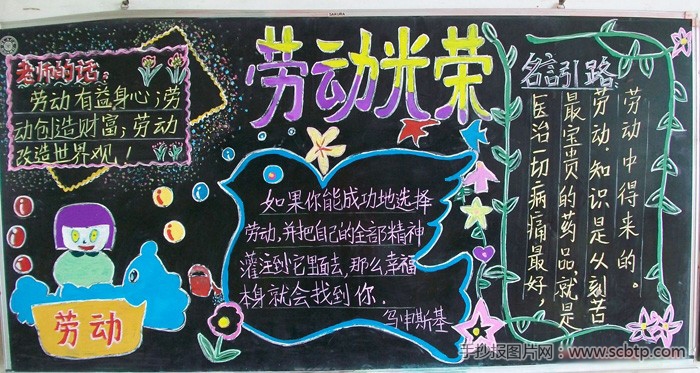 SAKURA
劳动光荣
老师的话:
劳动有益身心;劳
动创造财富;劳动
改造世界观!
劳动
如果你能成功地选择
劳动,并把自己的全部精神
灌注到它里面去,那么幸福
本身就会找到你.
乌申斯基
名言引路
医治一切病痛最好,
最宝贵的药品就是
劳动,知识是从刻苦
劳动中得来的。
手抄报图片网:www.scbtp.com